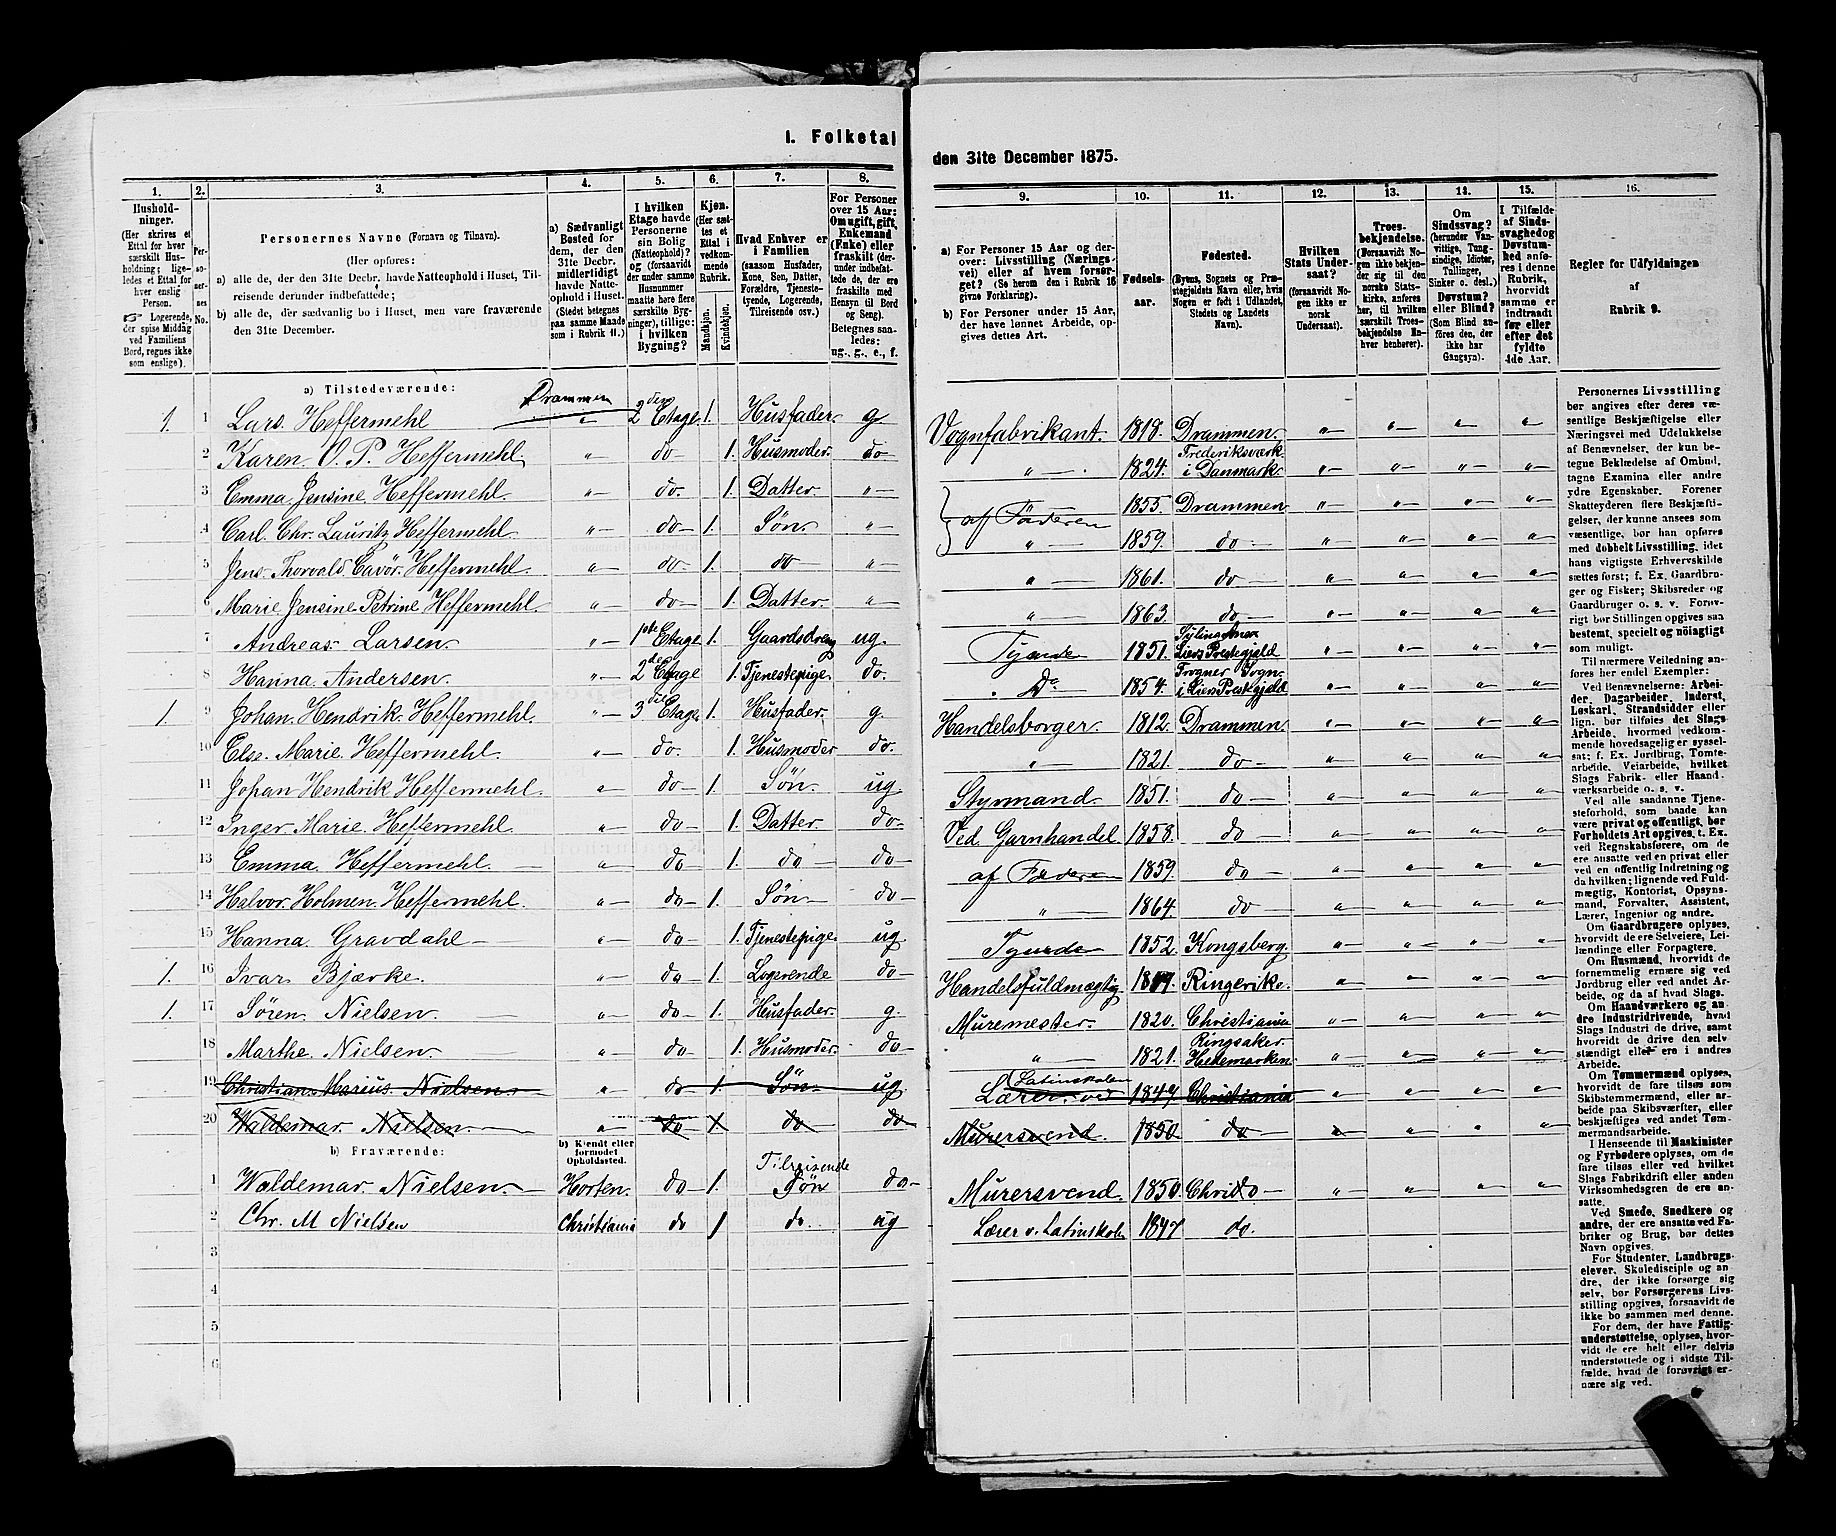 I. Folketal
den 31te December 1875.
1.
Husholdninger.
(Her skrives et
Ettal for hver
særskilt Husholdning;
ligeledes et Ettal
for hver
enslig
Person.
☞ Logerende,
der spise Middag
ved Familiens
Bord, regnes ikke
som enslige).
2.
Personernes
No.
3.
Personernes Navne (Fornavn og Tilnavn).
(Her opføres:
a) alle de, der den 31te Decbr. havde Natteophold i Huset, Tilreisende
derunder indbefattede;
b) alle de, der sædvanlig bo i Huset, men vare fraværende
den 31te December.
4.
a) Sædvanligt
Bosted for
dem, der den
31te Decbr.
midlertidigt
havde Natteophold
i Huset.
(Stedet betegnes
paa samme Maade
som i Rubrik 11.)
5.
I hvilken
Etage havde
Personerne
sin Bolig
(Natteophold)?
og (forsaavidt
der under samme
Husnummer
maatte høre flere
særskilte Bygninger),
tillige:
i hvilken
Bygning?
6.
Kjøn.
(Her sættes
et
Ettal i
vedkommende
Rubrik.
Mandkjøn.
Kvindekjøn.
7.
Hvad Enhver er
i Familien
(saasom Husfader,
Kone, Søn, Datter,
Forældre, Tjenestetyende,
Logerende,
Tilreisende osv.)
8.
For Personer
over 15 Aar:
Om ugift, gift,
Enkemand
(Enke) eller
fraskilt (derunder
indbefattede
de, der ere
fraskilte med
Hensyn til Bord
og Seng).
Betegnes saaledes:
ug., g., e., f.
9.
a) For Personer 15 Aar og derover:
Livsstilling (Næringsvei)
eller af hvem forsørget?
(Se herom den i Rubrik 16
givne Forklaring).
b) For Personer under 15 Aar,
der have lønnet Arbeide, opgives
dettes Art.
10.
Fødselsaar.
11.
Fødested.
(Byens, Sognets og Præstegjeldets
Navn eller, hvis
Nogen er født i Udlandet,
Stedets og Landets
Navn).
12.
Hvilken
Stats Undersaat?
(forsaavidt Nogen
ikke er
norsk
Undersaat).
13.
Troesbekjendelse.
(Forsaavidt Nogen
ikke bekjender
sig til den
norske Statskirke,
anføres
her, til hvilken
særskilt Troesbekjendelse
Enhver
henhører).
14.
Om
Sindssvag?
(herunder Vanvittige,
Tungsindige,
Idioter,
Tullinger,
Sinker o. desl.)
Døvstum?
eller Blind?
(Som Blind anføres
den, der
ikke har
Gangsyn).
15.
I Tilfælde
af Sindssvaghed
og
Døvstumhed
anføres
i denne
Rubrik,
hvorvidt
samme er
indtraadt
før eller
efter det
fyldte
4de Aar.
16.
Regler for Udfyldningen
af
Rubrik 9.
a) Tilstedeværende:
1. 1 Lars Heffermehl Drammen „ 2den Etage 1. Husfader g Vognfabrikant. 1818. Drammen. „ „ „ „
2 Karen O. P. Heffermehl. „ do 1. Husmoder. do „ 1824. Frederiksværk i Danmark „ „ „ „
3 Emma Jensine Heffermehl. „ do. 1. Datter. „ af Faderen 1855. Drammen „ „ „ „
4 Carl Chr. Lauritz Heffermehl. „ do 1. Søn. „ „ 1859. do „ „ „ „
5 Jens Thorvald Cavör. Heffermehl. „ do 1. do „ „ 1861. do „ „ „ „
6 Marie Jensine Petrine Heffermehl. „ do 1. Datter. „ „ 1863. do „ „ „ „
7 Andreas Larsen. „ 1ste Etage 1. Gaardsdreng ug. Tyende 1851. Liers Prestegjeld „ „ „ „
8 Hanna Andersen. „ 2den Etage 1. Tjenestepige do. Do 1854. Frogner Sogn. i Liers Prestegjeld „ „ „ „
1. 9 Johan Hendrik Heffermehl. „ 3die Etage 1. Husfader. g. Handelsborger 1812. Drammen. „ „ „ „
10 Else Marie Heffermehl. „ do. 1. Husmoder do. „ 1821. do „ „ „ „
11 Johan Hendrik Heffermehl. „ do 1. Søn. ug. Styrmand. 1851. do „ „ „ „
12 Inger Marie Heffermehl. „ do 1. Datter. do Ved Garnhandel 1858. do „ „ „ „
13 Emma Heffermehl. „ do 1. do do af Faderen 1859. do „ „ „ „
14 Halvor Holmen Heffermehl. „ do 1. Søn do „ 1864. do „ „ „ „
15 Hanna Gravdahl „ do 1. Tjenestepige ug. Tyende 1852. Kongsberg. „ „ „ „
1. 16 Ivar Bjærke. „ do 1. Logerende do Handelsfuldmægtig Ringerike. „ „ „ „
1. 17 Søren Nielsen. „ do 1. Husfader. g. Muremester. 1820. Christiania „ „ „ „
18 Marthe Nielsen. „ do 1. Husmoder. do „ 1821. Ringsaker Hedemarken. „ „ „ „
19 Christian Marius Nielsen „ do 1. Søn ug Lærer ved Latinskolen 1847 Christiania „ „ „ „
20 Waldemar Nielsen. „ do 1. do do Murersvend. 1850. do „ „ „ „
b) Fraværende:
b) Kjendt eller
formodet
Opholdssted.
1 Waldemar Nielsen. Horten. do 1. Tilreisende Søn do Murersvend. 1850. Chri do „ „ „ „
2 Chr. M Nielsen Christiania do 1 do. ug Lærer v. Latinskole 1847 do.
3
4
5
6
Personernes Livsstilling
bør angives efter deres væsentlige
Beskjæftigelse eller
Næringsvei med Udelukkelse
af Benævnelser, der kun betegne
Beklædelse af Ombud,
tagne Examina eller andre
ydre Egenskaber. Forener
Skatteyderen flere Beskjæftigelser,
der kunne ansees som
væsentlige, bør han opføres
med dobbelt Livsstilling, idet
hans vigtigste Erhvervskilde
sættes først; f. Ex. Gaardbruger
og Fisker; Skibsreder og
Gaardbruger o. s. v. Forøvrigt
bør Stillingen opgives saa
bestemt, specielt og nöiagtigt
som muligt.
Til nærmere Veiledning anføres
her endel Exempler:
Ved Benævnelserne: Arbeider,
Dagarbeider, Inderst,
Løskarl, Strandsidder eller
lign. bør tilføies det Slags
Arbeide, hvormed vedkommende
hovedsagelig er sysselsat;
f. Ex. Jordbrug, Tomtearbeide,
Veiarbeide, hvilket
Slags Fabrik- eller Haandværksarbeide
o. s. v.
Ved alle saadanne Tjenesteforhold,
som baade kan
være privat og offentligt, bør
Forholdets Art opgives, t. Ex.
ved Regnskabsførere, om de
ere ansatte ved en privat eller
ved en offentlig Indretning og
da hvilken; lignende ved Fuldmægtig,
Kontorist, Opsynsmand,
Forvalter, Assistent,
Lærer, Ingeniør og andre.
Om Gaardbrugere oplyses,
hvorvidt de ere Selveiere, Leilændinge
eller Forpagtere.
Om Husmænd, hvorvidt de
fornemmelig ernære sig ved
Jordbrug eller ved andet Arbeide,
og da af hvad Slags.
Om Haandværkere og andre
Industridrivende, hvad
Slags Industri de drive, samt
hvorvidt de drive den selvstændigt
eller ere i andres
Arbeide.
Om Tømmermænd oplyses,
hvorvidt de fare tilsøs som
Skibstømmermænd, eller arbeide
paa Skibsværfter, eller
beskjæftiges ved andet Tømmermandsarbeide.
I Henseende til Maskinister
og Fyrbødere oplyses, om de
fare tilsøs eller ved hvilket
Slags Fabrikdrift eller anden
Virksomhedsgren de ere ansatte.
Ved Smede, Snedkere og
andre, der ere ansatte ved Fabriker
og Brug, bør dettes
Navn opgives.
For Studenter, Landbrugselever,
Skoledisciple og andre,
der ikke forsørge sig
selv, bør Forsørgerens Livsstilling
opgives, forsaavidt de
ikke bo sammen med denne.
For dem, der have Fattigunderstøttelse,
oplyses, hvorvidt
de ere helt eller delvis
understøttede og i sidste Tilfælde,
hvad de forøvrigt ernære
sig ved.